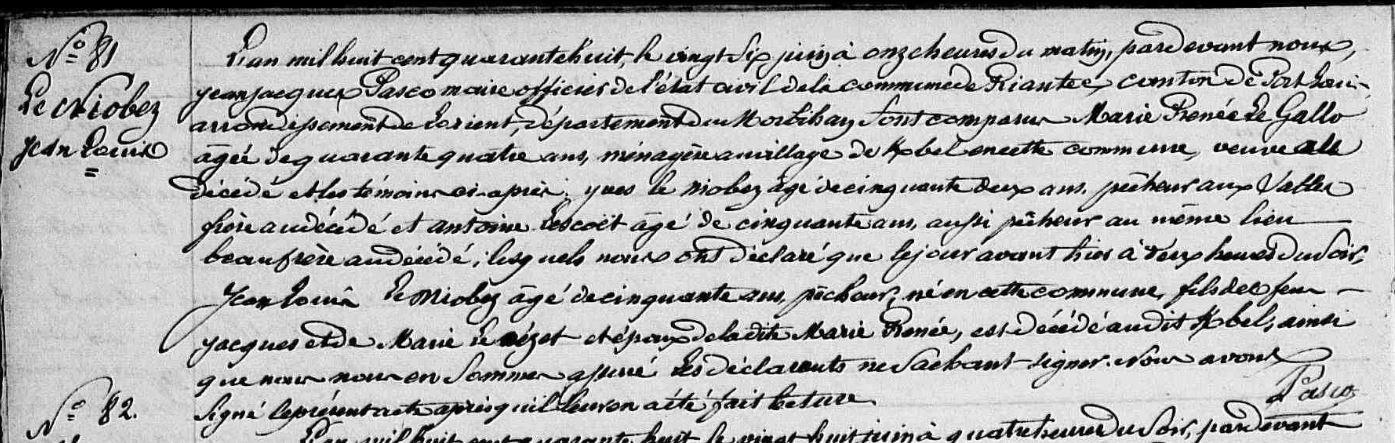 N° 81
Le Niobez
Jean Louis
=
L'an mil huit cent quarante huit, le vingt six juin à onze heures du matin, pardevant nous,
jean jacques Pasco maire officier de l'état civil de la commune de Riantec, canton de Port Louis
arrondissement de Lorient, département du Morbihan sont comparus Marie Renée Le Gallo
âgée de quarante quatre ans, ménagère au village de Kbel en cette commune, veuve
décédé et les témoins ci après: yves le niobez âgé de cinquante deux ans, pêcheur aux Salles
frère au décédé et antoine Lescoët âgé de cinquante ans, aussi pêcheur au même lieu
beaufrère au décédé; lesquels nous ont déclaré que le jour avant hier à deux heures du soir,
Jean Louis le Niobez âgé de cinquante ans, pêcheur, né en cette commune, fils de feu
jacques et de Marie et époux de la dite Marie Renée, est décédé au dit Kbel, ainsi
que nous nous en sommes assuré Les déclarants ne sachant signer. Nous avons
signé le présent acte après qu'il leur en a été fait lecture
Pasco
N° 82.
L'an mil huit cent quarante huit le vingt huit juin à quatre heures du soir, pardevant